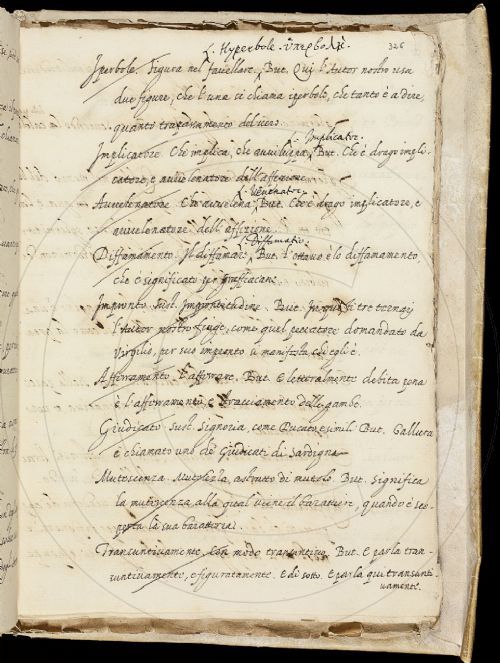 L. Hyperbole. ὑπερβολὴ. 326
Iperbole. Figura nel favellare. But. Qui l'Autor nostro usa
due figure, che l'una si chiama iperbole, che tanto è a dire,
quanto trapassamento del vero.
L. Implicator.
Implicatore. Che implica, che avviluppa. But. Che è drago impli-
catore, e avvelenatore dell'affezione
L. Venenator.
Avvelenatore. Che avvelena. But. Che è drago implicatore, e
avvelenatore dell'affezione
L. Diffamatio.
Diffamamento. Il diffamare. But. l'ottavo è lo diffamamento,
che è significato per
Impronto. Sust. Improntitudine. But. In
l'Autor nostro finge, come quel peccatore domandato da
Virgilio, per suo impronto si manifesta chi egli è.
Afferramento. L'afferrare. But. E letteralmente debita pena
è l'afferramento, e stracciamento delle gambe.
Giudicato. Sust. Signoria, come Ducato, e simili. But. Gallura
è chiamato uno de' Giudicati di Sardigna
Mutescenza. Mutolezza, astratto di mutolo. But. Significa
la mutescenza alla qual viene il barattiere, quando è sco-
perta la sua baratteria.
Transuntivamente. Con modo transuntivo. But. E parla tran-
suntivamente, e figuratamente. E di sotto. E parla qui transunti-
vamente.